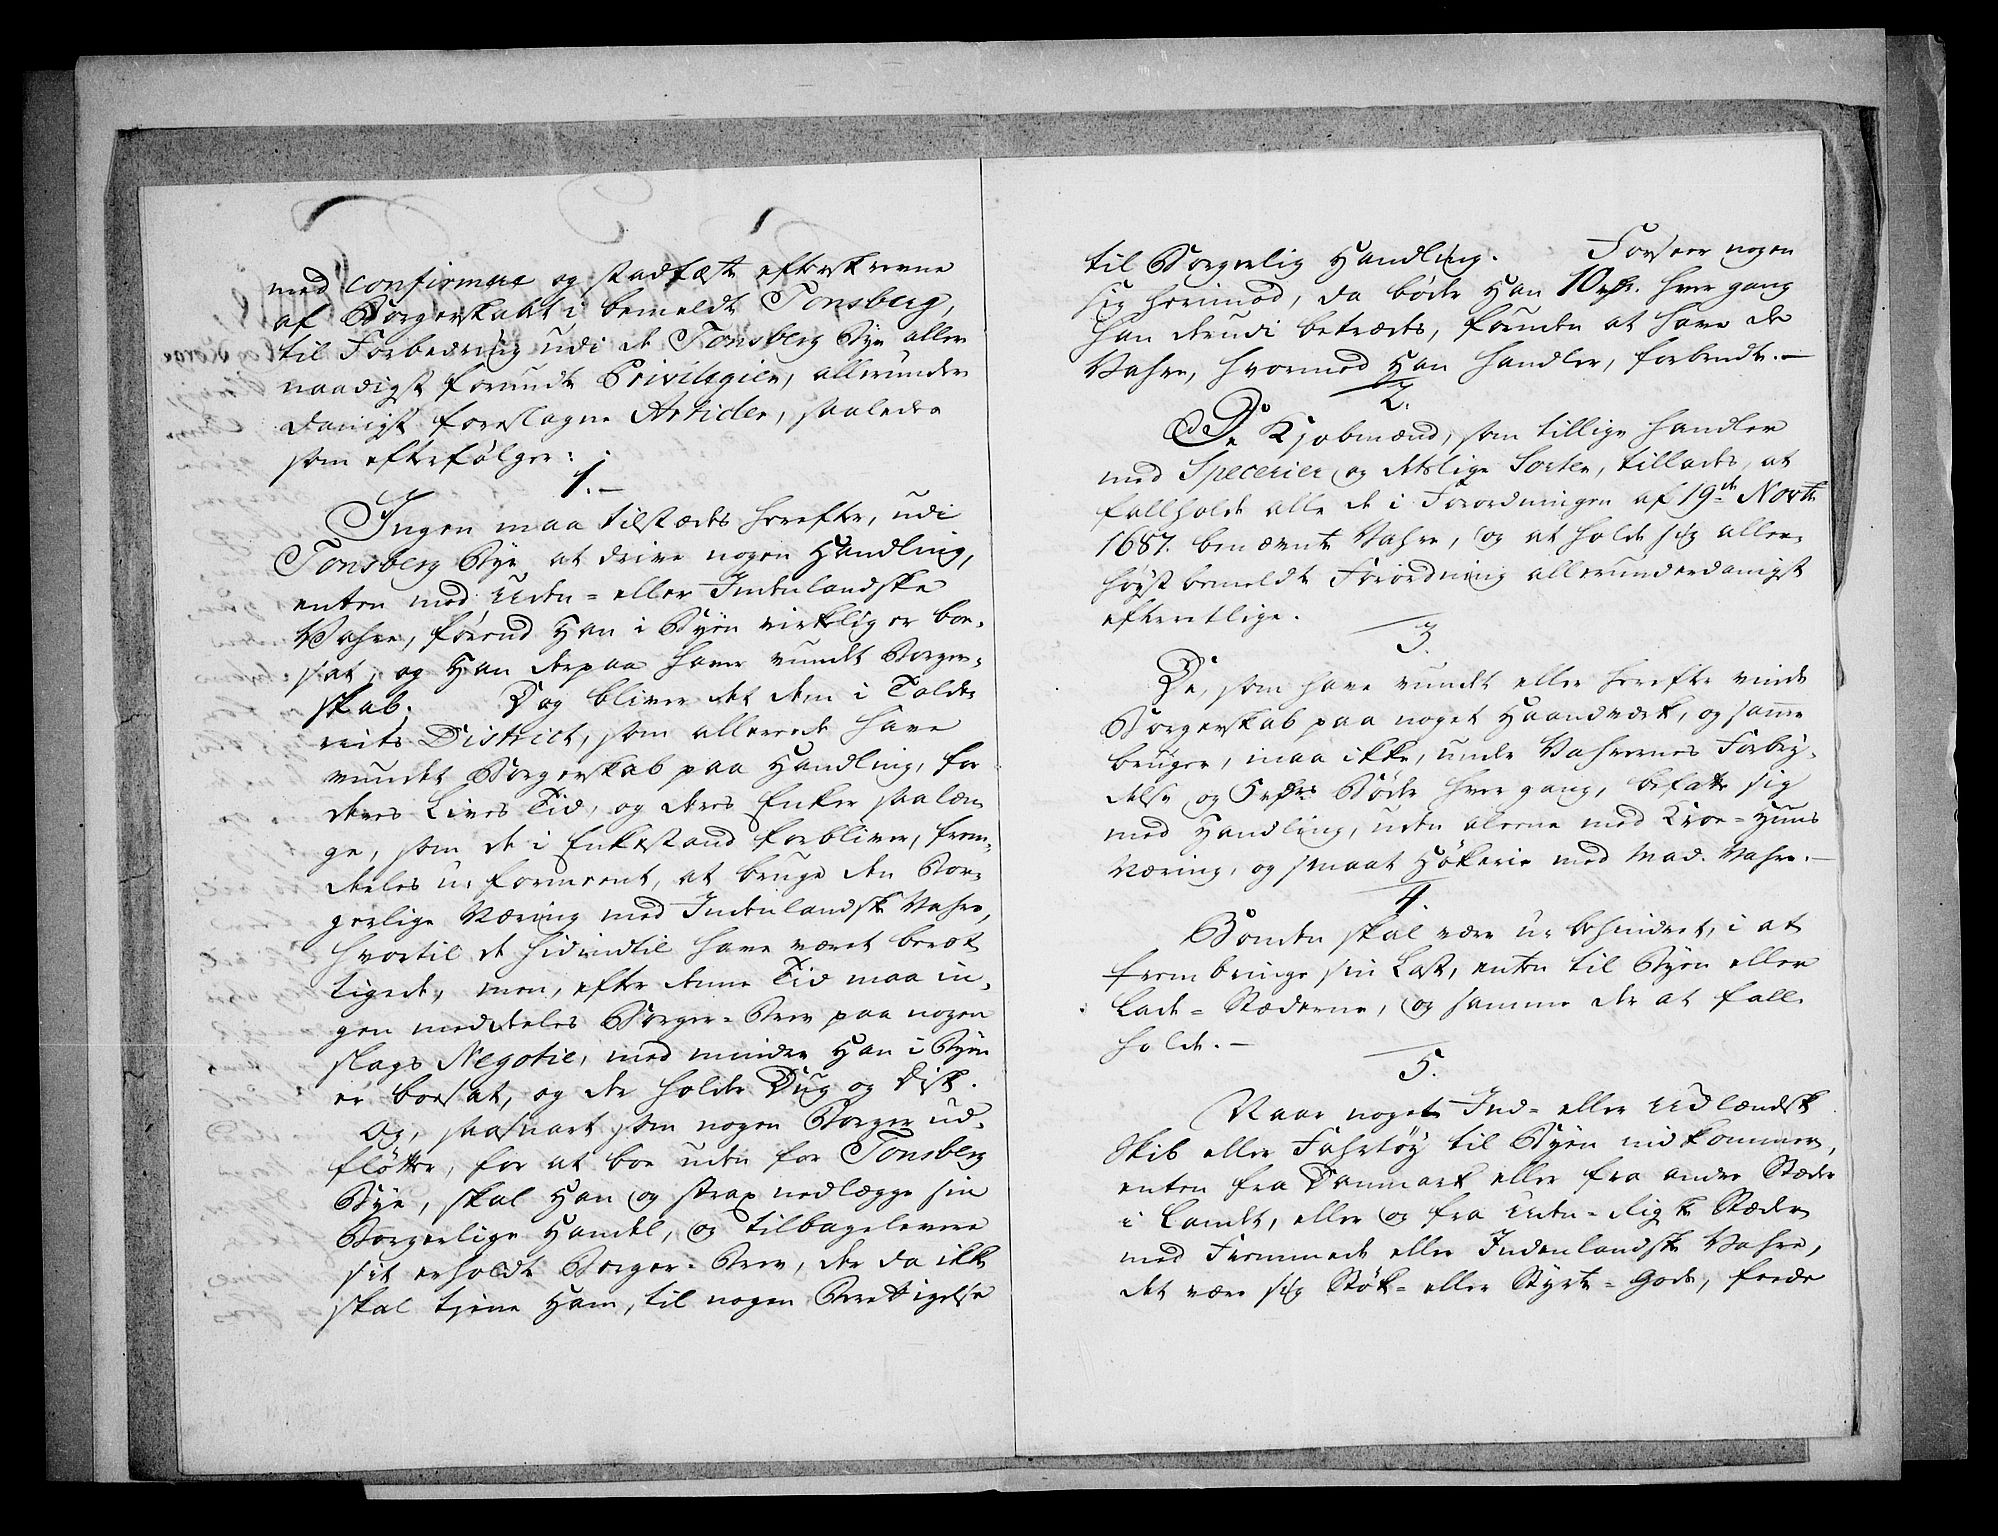 med confirmere og stadfæste efterskrevne
af Borgerskabet i bemeldte Tonsberg,
til Forbedring udi de Tonsberg Bye aller
naadigst forundte Privilegier, allerunder
danigst foreslagne Articler, saaledes
som efterfølger:
1.
Ingen maa tilstædes herefter, udi
Tonsberg Bye at drive nogen Handling,
enten med Uden- eller Indenlandske
Vahre, førend Han i Byen virkelig er boe-
sat, og Han derpaa haver vundet Borger-
skab. Dog bliver det dem i Tolde-
riets District, som allerede have
vundet Borgerskab paa Handling, for
deres Lives Tid, og deres Enker saalæn-
ge, som de i Enkestand forbliver, frem-
deles u-formeent, at bruge den Bor-
gerlige Næring med Indenlandske Vahre,
hvortil de hidindtil have været beret-
tigede, men, efter denne Tid maa in-
gen meddeles Borger-Brev paa nogen
slags Negotie, med mindre Han i Byen
er boesat, og der holder Dug og Disk.
Og, saasnart som nogen Borger ud-
flötter, for at boe uden for Tonsberg
Bye, skal Han og strax nedlægge sin
Borgerlige Handel, og tilbagelevere
sit erholdte Borger-Brev, der da ikke
skal tjene Ham, til nogen Berettigelse
til Borgerlig Handling. Forseer nogen
sig herimod, da bøde Han 10 rdr. hver gang
han derudi betrædes, foruden at have de
Vahre, hvormed Han handler, forbrudt.
2.
De Kjøbmænd, som tillige handler
med Specerier og deslige Sorter, tillades, at
fallholde alle de i Forordningen af 19de Novbr
1687. benævnte Vahre, og at holde sig aller-
høyst bemeldte Forordning allerunderdanigst
efterrettlige.
3.
De, som have vundet eller herefter vinde
Borgerskab paa noget Haandværk, og samme
bruger, maa ikke, under Vahrernes Forbry-
delse og 5 rdrs Bøde hver gang, befatte sig
med Handling, uden alene med Kroe-Huus
Næring, og smaat Hökerie med Mad-Vahre.
4.
Bonden skal være u-behindret, i at
frembringe sin Last, enten til Byen eller
Lade-Stæderne, og samme der at fall-
holde.
5.
Naar noget Ind- eller Udlændsk
Skib eller Fahrtöy til Byen indkommer,
enten fra Danmark eller fra andre Stæder
i Landet, eller og fra Uden-rigske Stæder
med Fremmede eller Indenlandske Vahre,
det være sig Støk- eller Styrte-Gods, feede